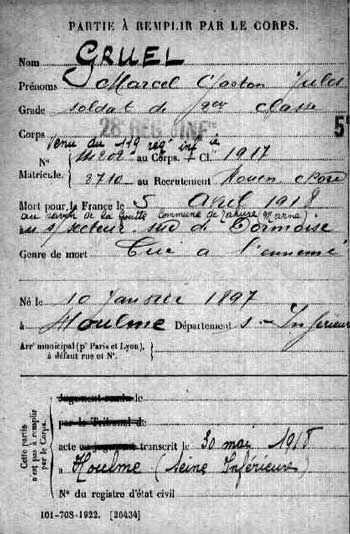 PARTIE À REMPLIR PAR LE CORPS.
Nom GRUEL
Prénoms Marcel Gaston Jules
Grade soldat de 2eme classe
28 REG INFie 5e
Corps venu du 119 reg inf ie
N° 14202 au Corps. Cl. 1917
Matricule. 2710 au Recrutement Rouen
Mort pour la France le 5 Avril 1918
au ravin de la Goutte commune de Tahure (Marne)
s/secteur sud de Dormoise
Genre de mort Tué a l'ennemi
Né le 10 Janvier 1897
à Houlme Département S. Inférieure
Arrt municipal (pr Paris et Lyon),
à défaut rue et N°.
Cette partie n'est pas à remplir par le Corps.
Jugement rendu le
par le Tribunal de
acte ou jugement transcrit le 30 mai 1918
à Houlme (Seine Inférieure)
N° du registre d'état civil
101-708-1922. [26434]